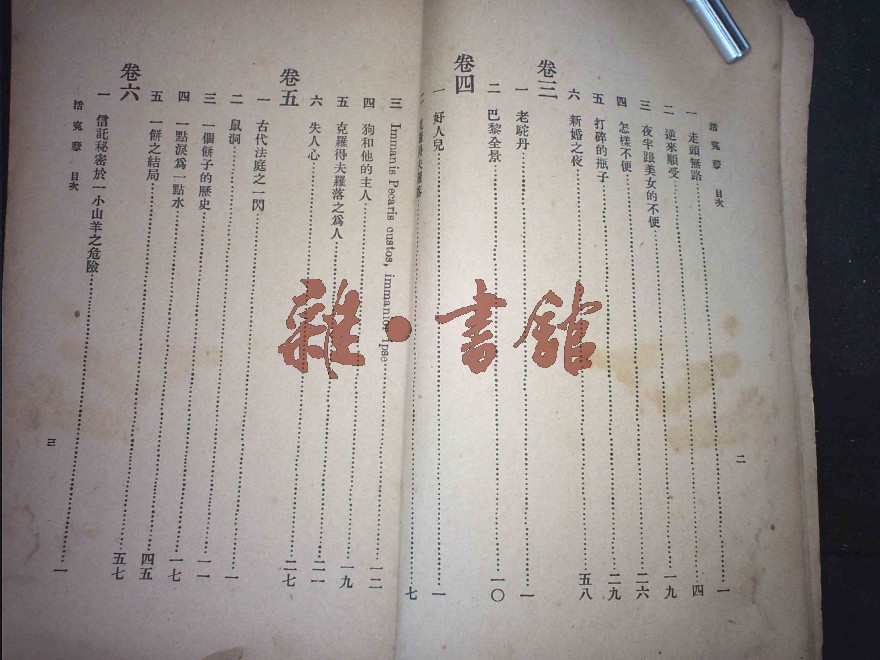 活冤孽 目次
二
一 走頭無路……一
二 逆來順受……四
三 夜半跟美女的不便……一九
四 怎樣不便……二六
五 打碎的瓶子……二九
六 新婚之夜……五八
卷三
一 老駝丹……一
二 巴黎全景……一〇
卷四
一 好人兒……一
二 克羅得夫羅落……七
三 Immanis Pecaris custos, immanior ipse……一二
四 狗和他的主人……一九
五 克羅得夫羅落之爲人……二一
六 失人心……二七
卷五
一 古代法庭之一閃……一
二 鼠洞……一一
三 一個餅子的歷史……一七
四 一點淚爲一點水……四五
五 一餅之結局……五七
卷六
一 信託秘密於一小山羊之危險……一
活冤孽 目次
三
雜·書舘